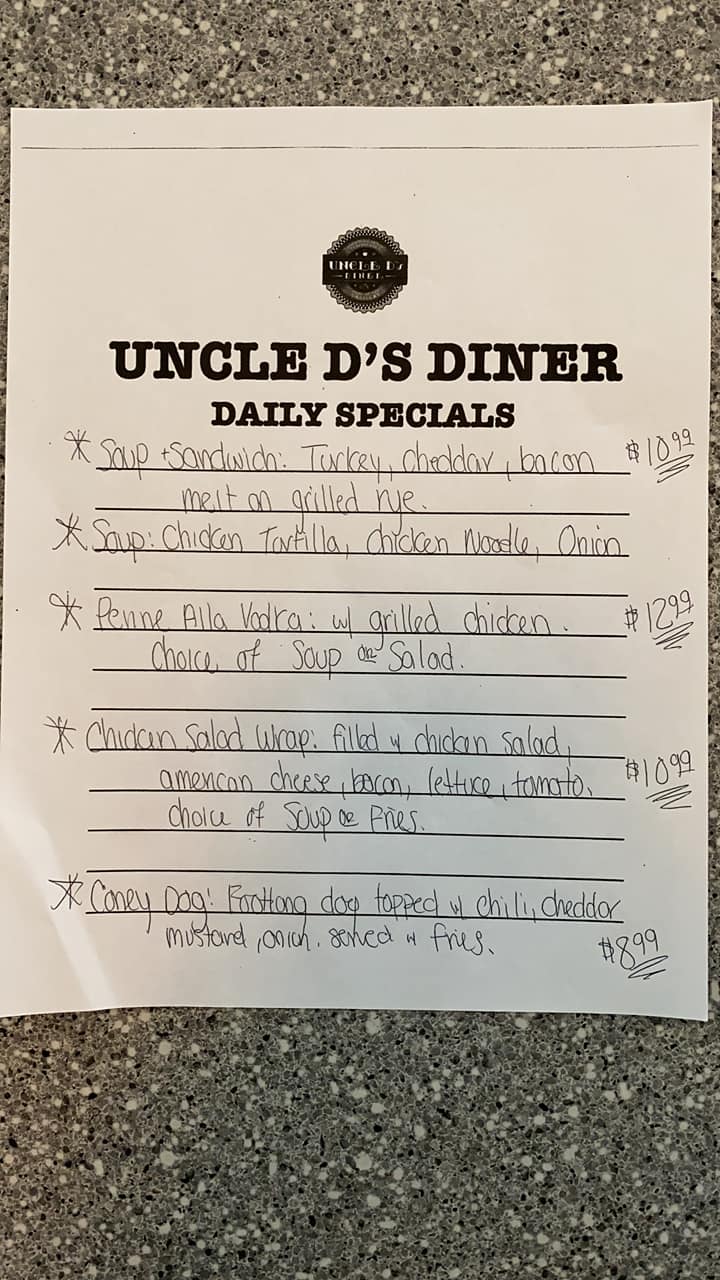 UNCLE D'S
DINER
UNCLE D'S DINER
DAILY SPECIALS
* Soup + Sandwich: Turkey, cheddar, bacon $10.99
melt on grilled rye.
* Soup: Chicken Tortilla, Chicken Noodle, Onion
* Penne Alla Vodka: w/ grilled chicken. $12.99
Choice of Soup or Salad.
* Chicken Salad Wrap: filled w chicken salad,
american cheese, bacon, lettuce, tomato. $10.99
choice of Soup or Fries.
* Coney Dog: Footlong dog topped w/ chili, cheddar
mustard, onion. served w fries. $8.99